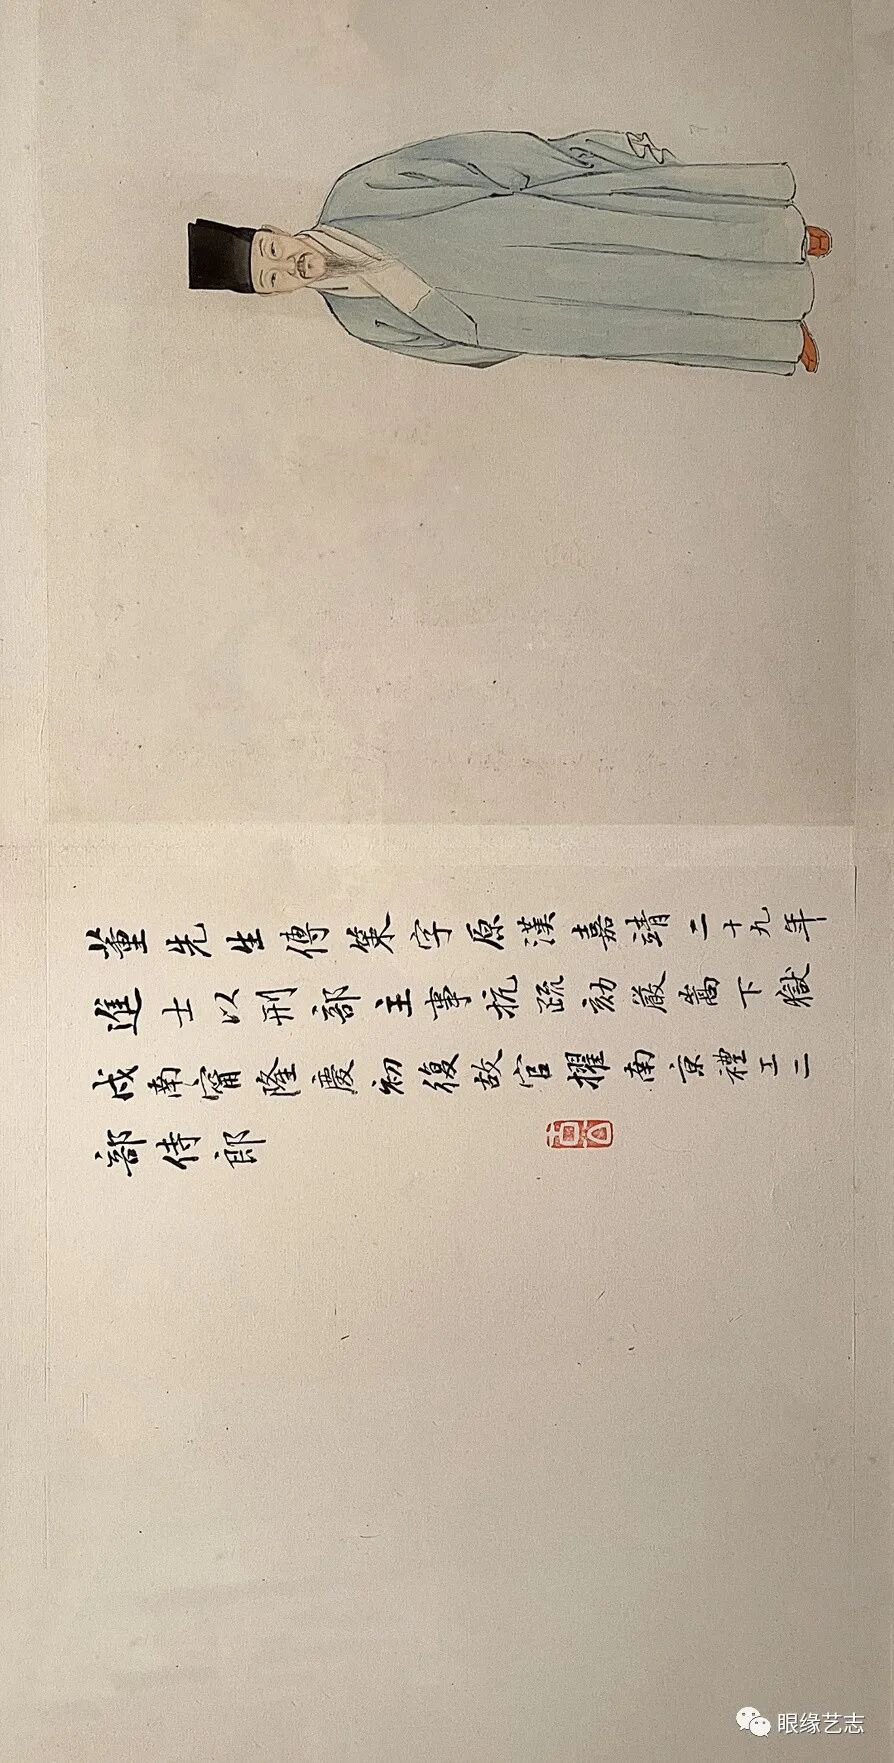 董先生傳策字原漢嘉靖二十九年
進士以刑部主事抗疏劾嚴嵩下獄
戍南甯隆慶初復故官擢南京禮工二
部侍郎
眼缘艺志